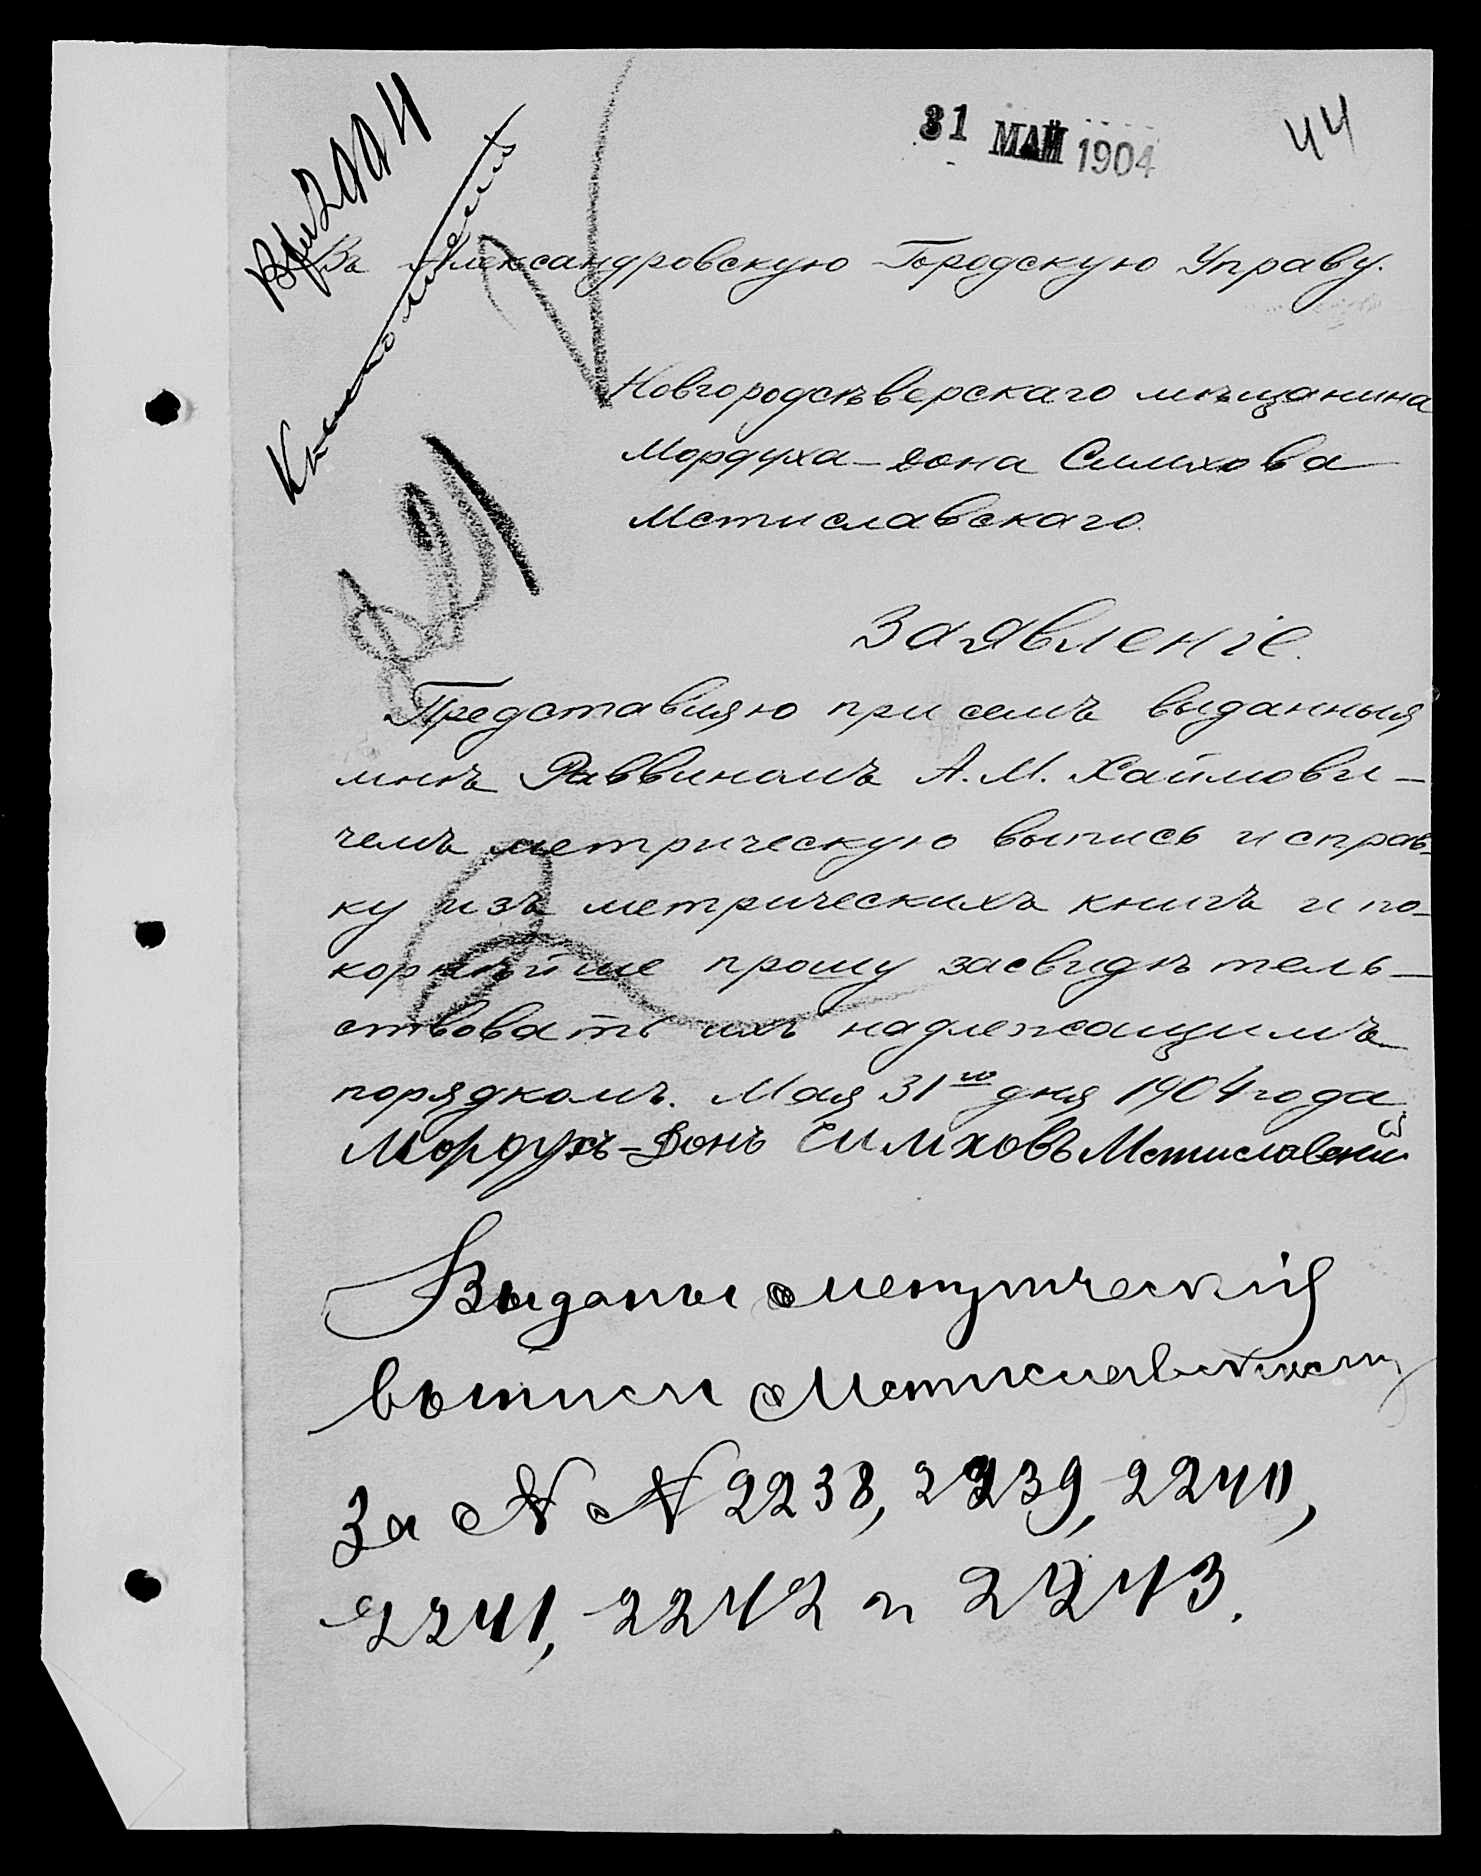 31 МАЙ 1904
44
Въ Александровскую Городскую Управу.
Новгородсѣверскаго мѣщанина
Мордуха-Дона Симхова
Мстиславскаго
Заявленіе.
Представляю при семъ выданныя
мнѣ Раввиномъ А. М. Хаймови-
чемъ метрическую выпись и справ-
ку изъ метрическихъ книгъ и по-
корнѣйше прошу засвидѣтель-
ствовать ихъ надлежащимъ
порядкомъ. Мая 31го дня 1904 года
Мордухъ-Донъ Симховъ Мстиславскій
Выданы метрическія
выписи Мстиславскому
За N N 2238, 2239, 2240,
2241, 2242 и 2243.